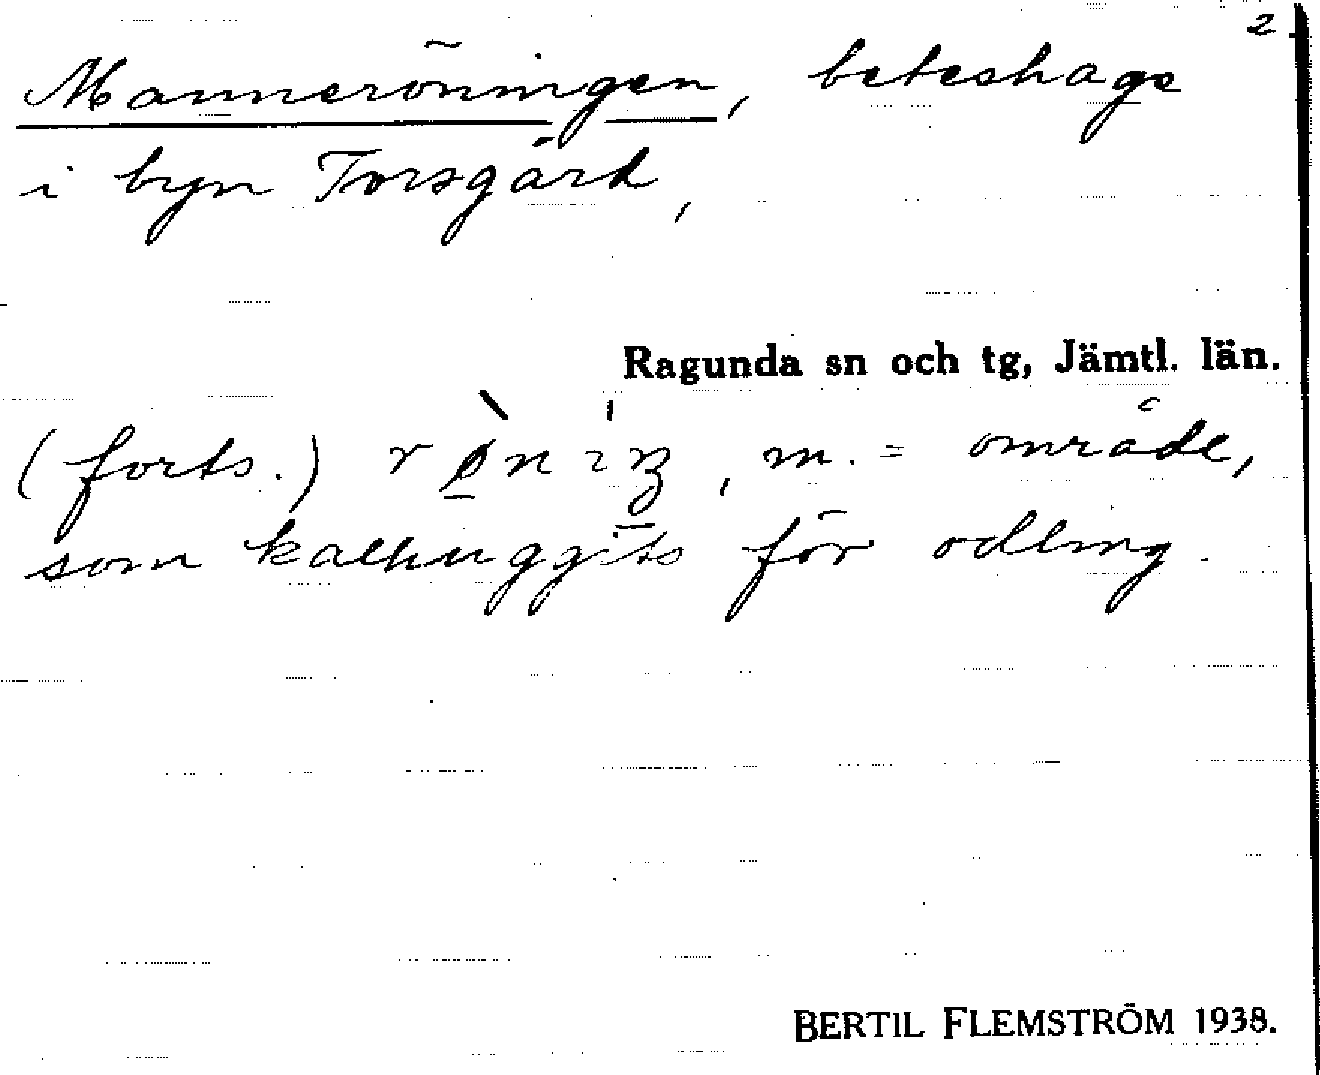 2.
Manneröningen, beteshage
i byn Torsgård,
Ragunda sn och tg, Jämtl. län.
(forts.) , m. = område,
som kalhuggits för odling.
BERTIL FLEMSTRÖM 1938.